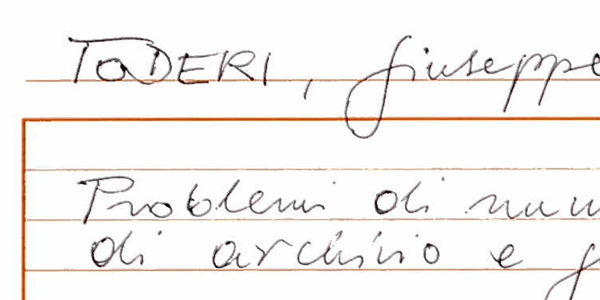 TODERI, Giuseppe
Problemi di num
di archivio e